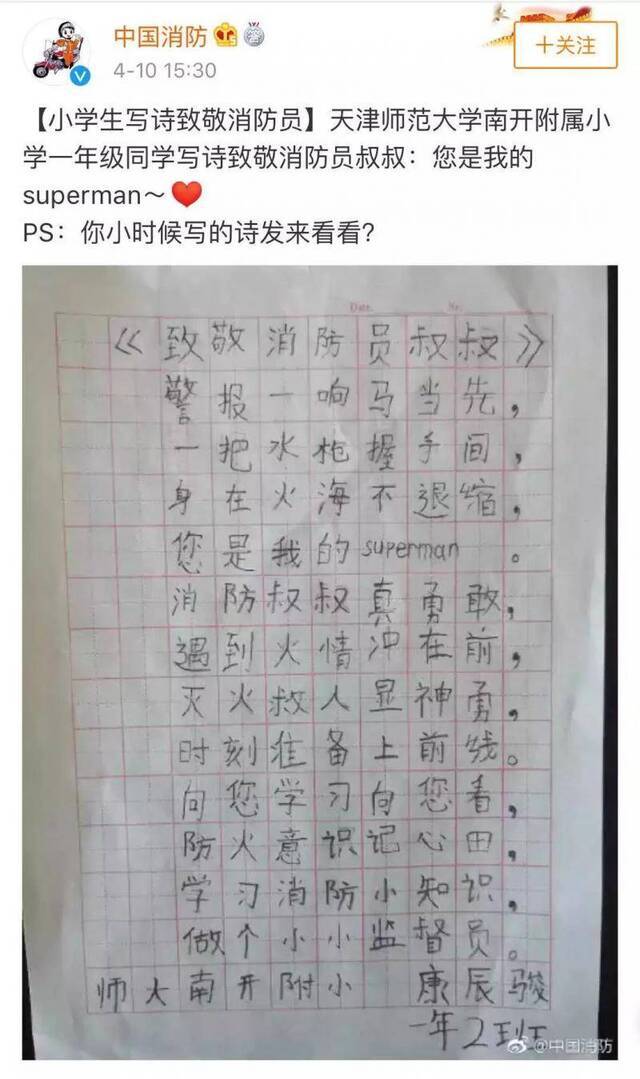 中国消防
4-10 15:30
＋关注
【小学生写诗致敬消防员】天津师范大学南开附属小
学一年级同学写诗致敬消防员叔叔：您是我的
superman～
PS：你小时候写的诗发来看看？
Date. Nr.
《致敬消防员叔叔》
警报一响马当先，
一把水枪握手间，
身在火海不退缩，
您是我的superman。
消防叔叔真勇敢，
遇到火情冲在前，
灭火救人显神勇，
时刻准备上前线。
向您学习向您看，
防火意识记心田，
学习消防小知识，
做个小小监督员。
师大南开附小 康辰骏
一年2班
@中国消防